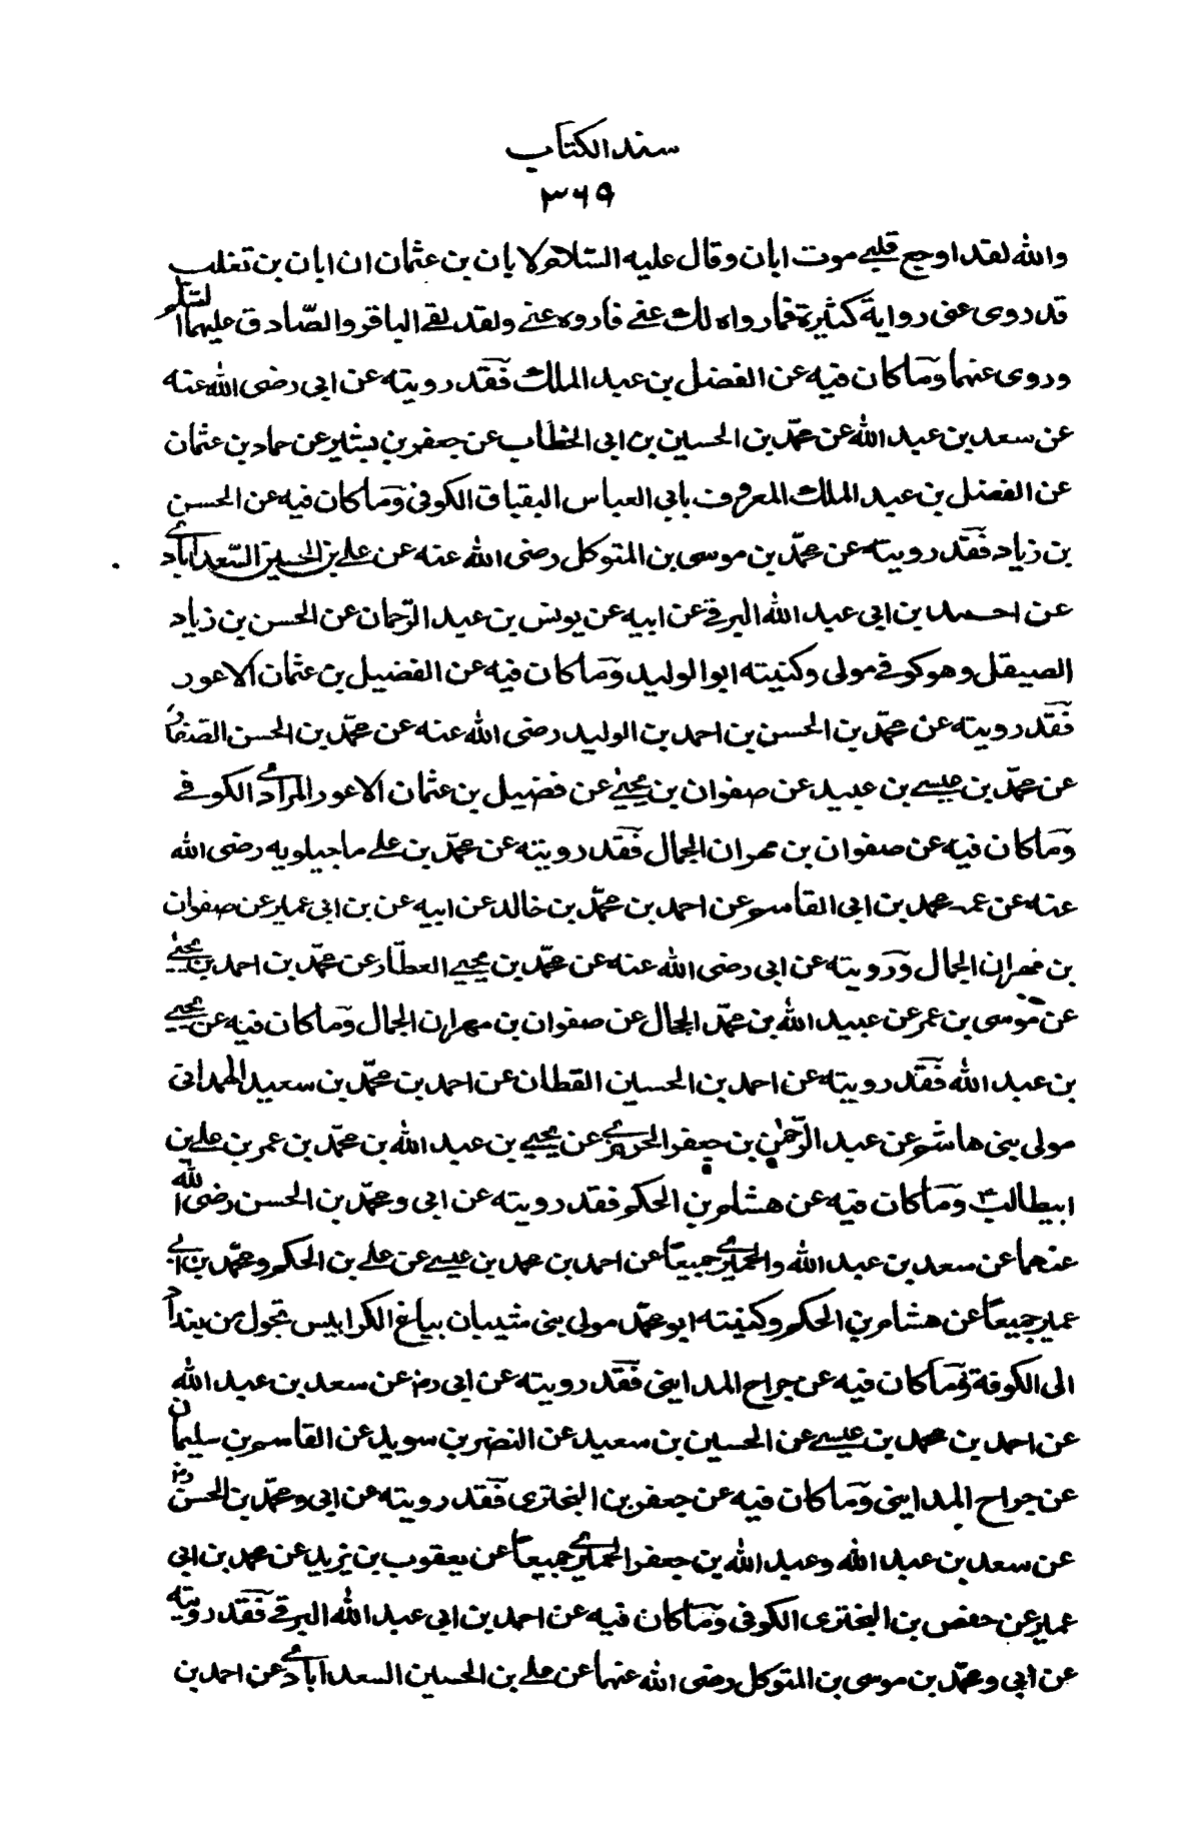 سند الكتاب
٣٦٩
والله لقد اوجع قلبي موت ابان وقال عليه السلام لابان بن عثمان ان ابان بن تغلب
قد روى عنى رواية كثيرة فما رواه لك عنى فاروه عنى ولقد لقى الباقر والصّادق عليهما السّلم
وروى عنهما وَمَا كان فيه عن الفضل بن عبد الملك فَقَد رويته عن ابى رضى الله عنه
عن سعد بن عبد الله عن محمّد بن الحسين بن ابى الخطّاب عن جعفر بن بشير عن حماد بن عثمان
عن الفضل بن عبد الملك المعروف بابى العباس البقباق الكوفى وَمَا كان فيه عن الحسن
بن زياد فَقَد رويته عن محمّد بن موسى بن المتوكل رضى الله عنه عن على بن الحسين السّعدآبادى
عن احمد بن ابى عبد الله البرقى عن ابيه عن يونس بن عبد الرّحمان عن الحسن بن زياد
الصيقل وهو كوفى مولى وكنيته ابو الوليد وَمَا كان فيه عن الفضيل بن عثمان الاعور
فَقَد رويته عن محمّد بن الحسن بن احمد بن الوليد رضى الله عنه عن محمّد بن الحسن الصّفار
عن محمّد بن عيسى بن عبيد عن صفوان بن يحيى عن فضيل بن عثمان الاعور المرادى الكوفى
وَمَا كان فيه عن صفوان بن مهران الجمال فَقَد رويته عن محمّد بن على ماجيلويه رضى الله
عنه عن عمه محمد بن ابى القاسم عن احمد بن محمّد بن خالد عن ابيه عن بن ابى عمير عن صفوان
بن مهران الجمال وَرَويته عن ابى رضى الله عنه عن محمّد بن يحيى العطّار عن محمّد بن احمد بن يحيى
عن موسى بن عمر عن عبيد الله بن محمّد الجمال عن صفوان بن مهران الجمال وَمَا كان فيه عن يحيى
بن عبد الله فَقَد رويته عن احمد بن الحسين القطان عن احمد بن محمّد بن سعيد الهمدانى
مولى بنى هاشم عن عبد الرّحمن بن جعفر الحريرى عن يحيى بن عبد الله بن محمّد بن عمر بن على بن
ابيطالب وَمَا كان فيه عن هشام بن الحكم فقد رويته عن ابى ومحمّد بن الحسن رضى الله
عنهما عن سعد بن عبد الله والحميرى جميعًا عن احمد بن محمد بن عيسى عن على بن الحكم ومحمّد بن ابى
عمير جميعًا عن هشام بن الحكم وكنيته ابو محمّد مولى بنى شيبان بياع الكرابيس تحول من بغداد
الى الكوفة وَمَا كان فيه عن جراح المداينى فَقَد رويته عن ابى رض عن سعد بن عبد الله
عن احمد بن محمد بن عيسى عن الحسين بن سعيد عن النضر بن سويد عن القاسم بن سليمان
عن جراح المداينى وَمَا كان فيه عن جعفر بن البخترى فَقَد رويته عن ابى ومحمّد بن الحسن رض
عن سعد بن عبد الله وعبد الله بن جعفر الحميرى جميعًا عن يعقوب بن يزيد عن محمد بن ابى
عمير عن حفص بن البخترى الكوفى وَمَا كان فيه عن احمد بن ابى عبد الله البرقى فَقَد رويته
عن ابى ومحمّد بن موسى بن المتوكل رضى الله عنهما عن على بن الحسين السعدآبادى عن احمد بن